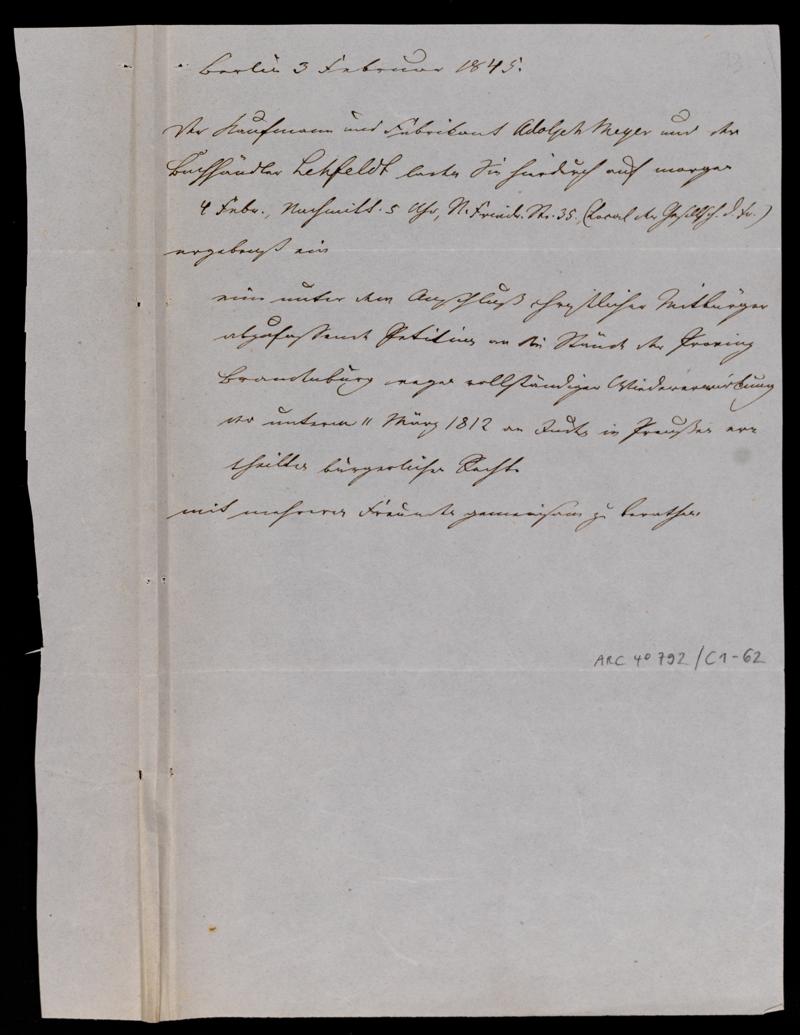 Berlin 3 Februar 1845.
Der Kaufmann und Fabrikant Adolph Meyer und der
Buchhändler Lehfeldt laden Sie hierdurch auf morgen
4 Febr., Nachmitt. 5 Uhr, N. Friedr. Str. 35. (Local der Gesellsch. d. Fr.)
ergebenst ein
eine unter dem Anschluß christlicher Mitbürger
abzufassende Petition an die Stände der Provinz
Brandenburg wegen vollständiger Wiedererwirkung
der unterm 11 März 1812 an Juden in Preußen er-
theilten bürgerlichen Rechte
mit mehreren Freunden gemeinsam zu berathen
ARC 4° 792 / C1-62